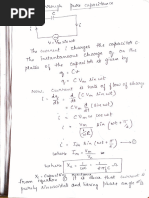 through pure capacitance
C
i
V = Vm sin ωt
The current i changes the capacitor C
The instantaneous charge q on the
plates of the capacitor is given by
q = CV
q = C Vm sin ωt
Now, Current is rate of flow of charge
i = dq/dt = d/dt (C Vm sin ωt)
= ω C Vm cos ωt
i = Vm/(1/ωC) sin (ωt + π/2)
i = Im sin (ωt + π/2)
where Im = Vm/Xc
where Xc = 1/ωC = 1/2πfC Ω
Xc → Capacitive reactance
From equation it is clear that current is
purely sinusoidal and having phase angle of